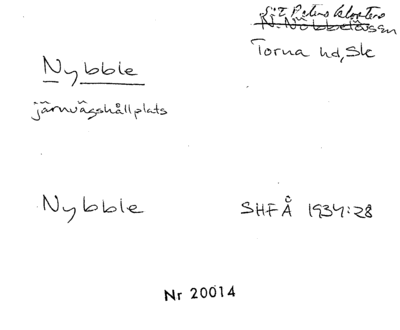 S:t Peters klosters
N. Nöbbelövsen
Torna hd, Sk
Nybble
järnvägshållplats
Nybble SHFÅ 1934:28
Nr 20014